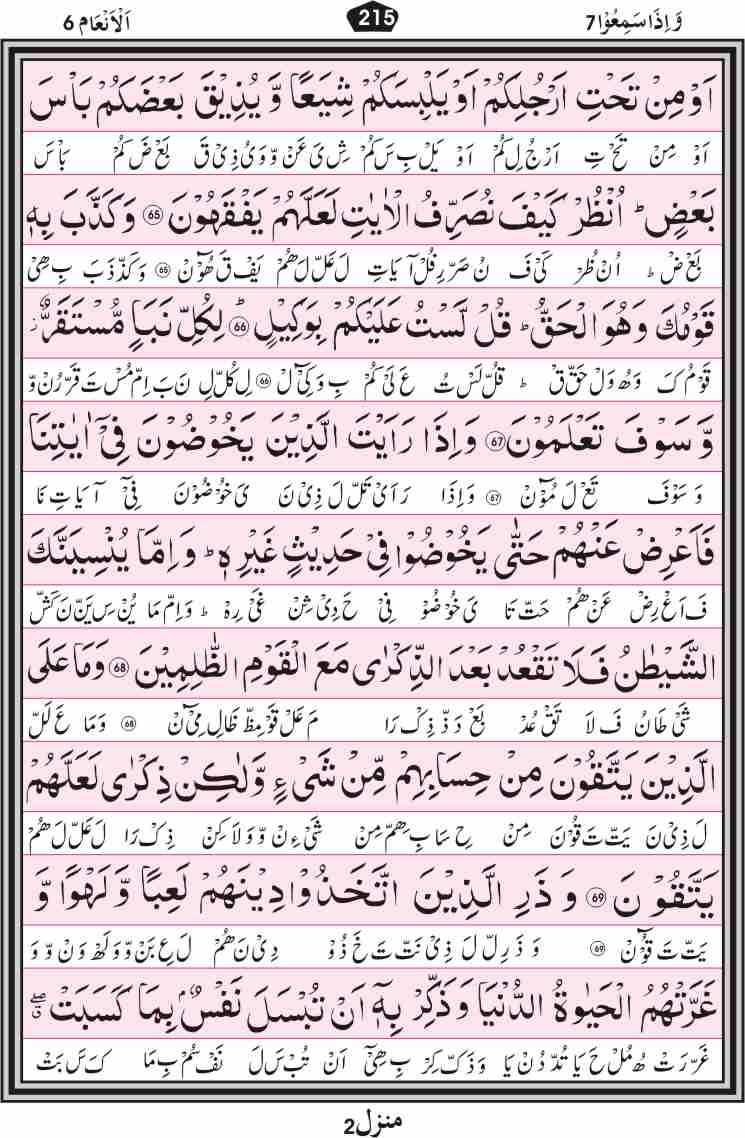 وَاِذَا سَمِعُوْا 7 215 اَلْاَنْعَام 6
اَوْ مِنْ تَحْتِ اَرْجُلِكُمْ اَوْ يَلْبِسَكُمْ شِيَعًا وَّ يُذِيْقَ بَعْضَكُمْ بَاْسَ
اَوْ مِنْ تَحْ تِ اَرْجُ لِ كُمْ اَوْ يَلْ بِ سَ كُمْ شِ يَ عَنْ وَّ وَ يُ ذِىْ قَ بَعْ ضَ كُمْ بَاْ سَ
بَعْضٍ ؕ اُنْظُرْ كَيْفَ نُصَرِّفُ الْاٰيٰتِ لَعَلَّهُمْ يَفْقَهُوْنَ ۝65 وَكَذَّبَ بِهٖ
بَعْ ضْ ؕ اُنْ ظُرْ كَىْ فَ نُ صَرْ رِ فُلْ اٰ يَاتِ لَ عَلْ لَ هُمْ يَفْ قَ هُوْٓنْ ۝65 وَ كَذْ ذَ بَ بِ هِىْ
قَوْمُكَ وَهُوَ الْحَقُّ ؕ قُلْ لَّسْتُ عَلَيْكُمْ بِوَكِيْلٍ ۝66 ؕ لِكُلِّ نَبَاٍ مُّسْتَقَرٌّ ز
قَوْ مُ كَ وَ هُ وَلْ حَقّ قْ ؕ قُلْ لَسْ تُ عَ لَىْ كُمْ بِ وَ كِىْٓ لْ ۝66 لِ كُلْ لِ نَ بَ اِمْ مُسْ تَ قَرْ رُنْ وَّ
وَّ سَوْفَ تَعْلَمُوْنَ ۝67 وَ اِذَا رَاَيْتَ الَّذِيْنَ يَخُوْضُوْنَ فِىْٓ اٰيٰتِنَا
وَ سَوْفَ تَعْ لَ مُوْٓنْ ۝67 وَ اِذَا رَ اَىْ تَلْ لَ ذِىْ نَ ىَ خُوْ ضُوْنَ فِىْٓ اٰ يَاتِ نَا
فَاَعْرِضْ عَنْهُمْ حَتّٰى يَخُوْضُوْا فِىْ حَدِيْثٍ غَيْرِهٖ ؕ وَ اِمَّا يُنْسِيَنَّكَ
فَ اَعْ رِضْ عَنْ هُمْ حَتْ تَا ىَ خُوْ ضُوْ فِىْ حَ دِىْ ثِنْ غَىْ رِهْ ؕ وَ اِمْ مَا يُنْ سِ يَنْ نَ كَشْ
الشَّيْطٰنُ فَلَا تَقْعُدْ بَعْدَ الذِّكْرٰى مَعَ الْقَوْمِ الظّٰلِمِيْنَ ۝68 وَمَا عَلَى
شَىْ طَانُ فَ لَا تَقْ عُدْ بَعْ دَ ذْ ذِكْ رَا مَ عَلْ قَوْ مِظْ ظَالِ مِىْٓنْ ۝68 وَمَا عَ لَلْ
الَّذِيْنَ يَتَّقُوْنَ مِنْ حِسَابِهِمْ مِّنْ شَىْءٍ وَّلٰكِنْ ذِكْرٰى لَعَلَّهُمْ
لَ ذِىْ نَ يَتْ تَ قُوْنَ مِنْ حِ سَا بِ هِمْ مِنْ شَىْ ءِنْ وَّ وَلَا كِنْ ذِكْ رَا لَ عَلْ لَ هُمْ
يَتَّقُوْنَ ۝69 وَ ذَرِ الَّذِيْنَ اتَّخَذُوْا دِيْنَهُمْ لَعِبًا وَّ لَهْوًا وَّ
يَتْ تَ قُوْٓنْ ۝69 وَ ذَ رِلْ لَ ذِىْ نَتْ تَ خَ ذُوْ دِىْ نَ هُمْ لَ عِ بَنْ وَّ وَ لَهْ وَنْ وَّ وَ
غَرَّتْهُمُ الْحَيٰوةُ الدُّنْيَا وَذَكِّرْ بِهٖٓ اَنْ تُبْسَلَ نَفْسٌۢ بِمَا كَسَبَتْ ۖۗ
غَرْ رَتْ هُ مُلْ حَ يَا تُدْ دُنْ يَا وَ ذَكْ كِرْ بِ هِىْٓ اَنْ تُبْ سَ لَ نَفْ سُمْ بِ مَا كَ سَ بَتْ
منزل 2